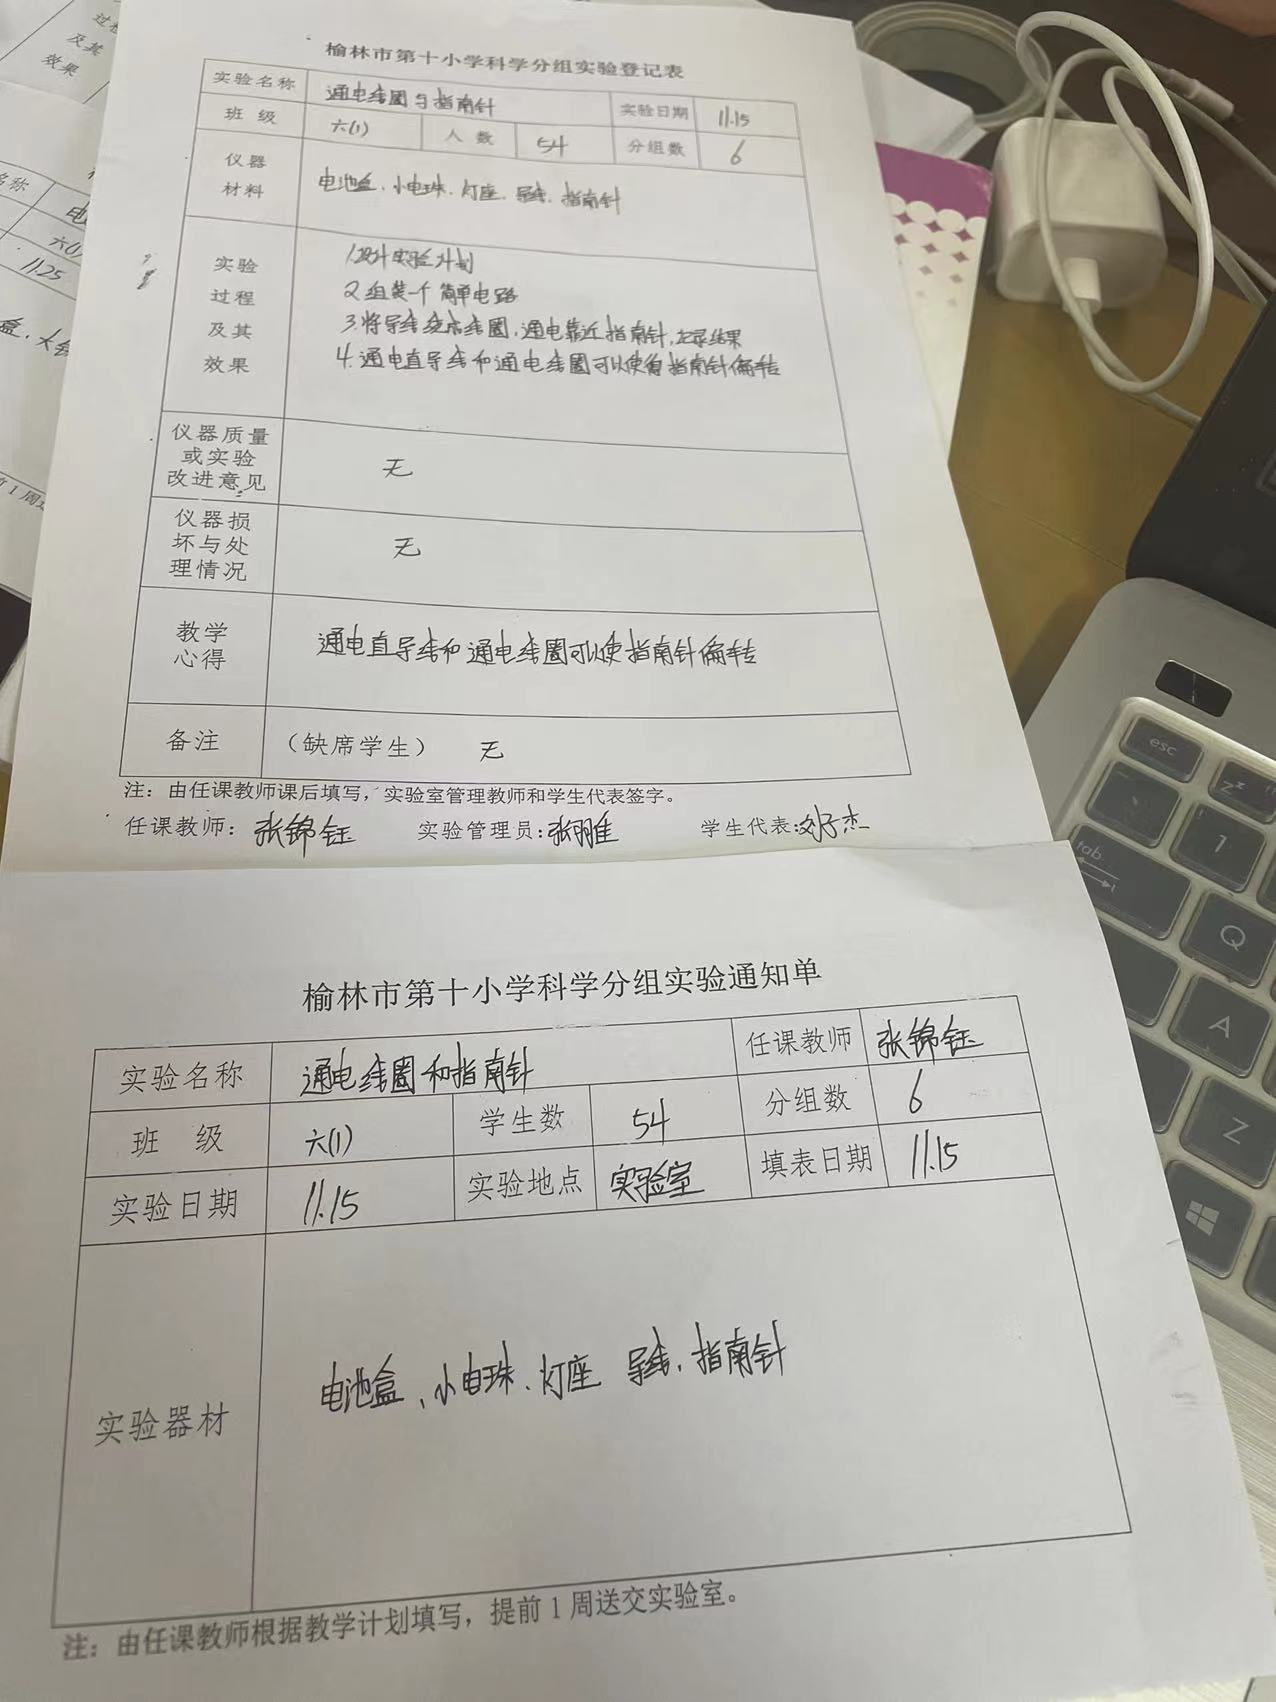 过
及其
效果
名称
六(1)
11.25
榆林市第十小学科学分组实验登记表
实验名称 通电线圈与指南针 实验日期 11.15
班 级 六(1) 人 数 54 分组数 6
仪器
材料
电池盒、小电珠、灯座、导线、指南针
实验
过程
及其
效果
1.设计实验计划
2.组装一个简单电路
3.将导线绕成线圈,通电靠近指南针,记录结果
4.通电直导线和通电线圈可以使得指南针偏转
仪器质量
或实验
改进意见
无
仪器损
坏与处
理情况
无
教学
心得
通电直导线和通电线圈可以使指南针偏转
备注 (缺席学生) 无
注:由任课教师课后填写,实验室管理教师和学生代表签字。
任课教师:张锦钰 实验管理员:张雅 学生代表:刘子杰
榆林市第十小学科学分组实验通知单
实验名称 通电线圈和指南针 任课教师 张锦钰
班 级 六(1) 学生数 54 分组数 6
实验日期 11.15 实验地点 实验室 填表日期 11.15
实验器材
电池盒、小电珠、灯座 导线、指南针
注:由任课教师根据教学计划填写,提前1周送交实验室。
esc
tab
1
Q
A
Z